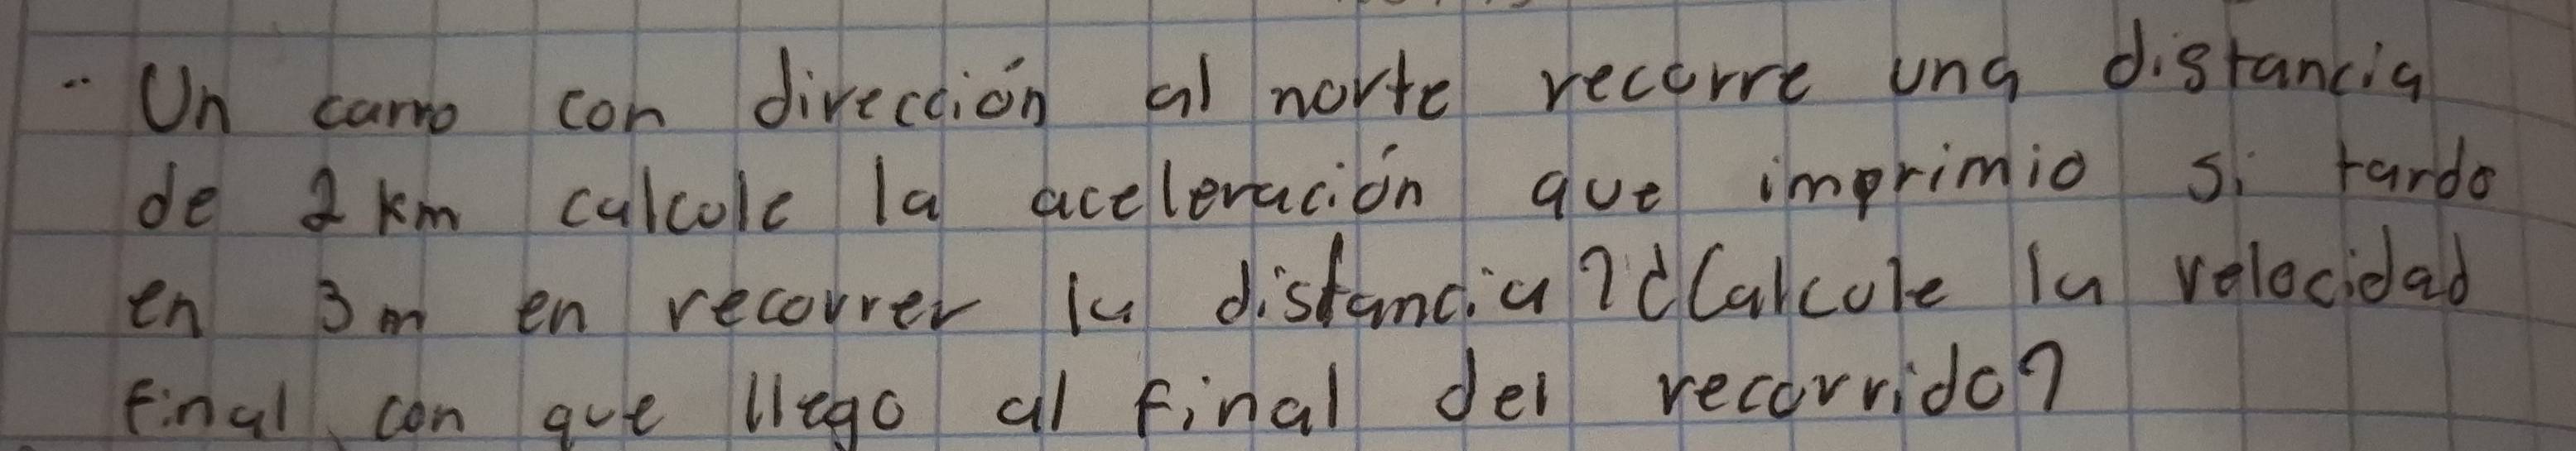 Un carro con dirección al norte recorre una distancia
de 2 km calcule la aceleración que imprimio si tardo
en 3m en recorrer la distancia? ¿Calcule la velocidad
final con que llego al final del recorrido?